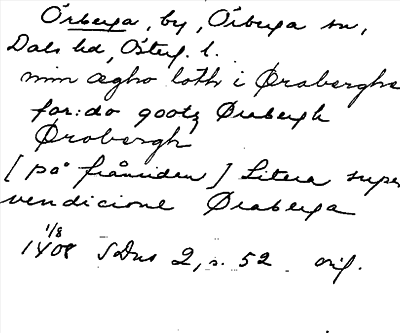 Örberga, by, Örberga sn,
Dals hd, Österg. l.
min ægho loth i Øraberghe
for:do gootzØrabergh
Ørobergh
[på fråmsidan] Litera super
vendicione Øraberga
1/8
1408 SDns 2, s. 52 orig.